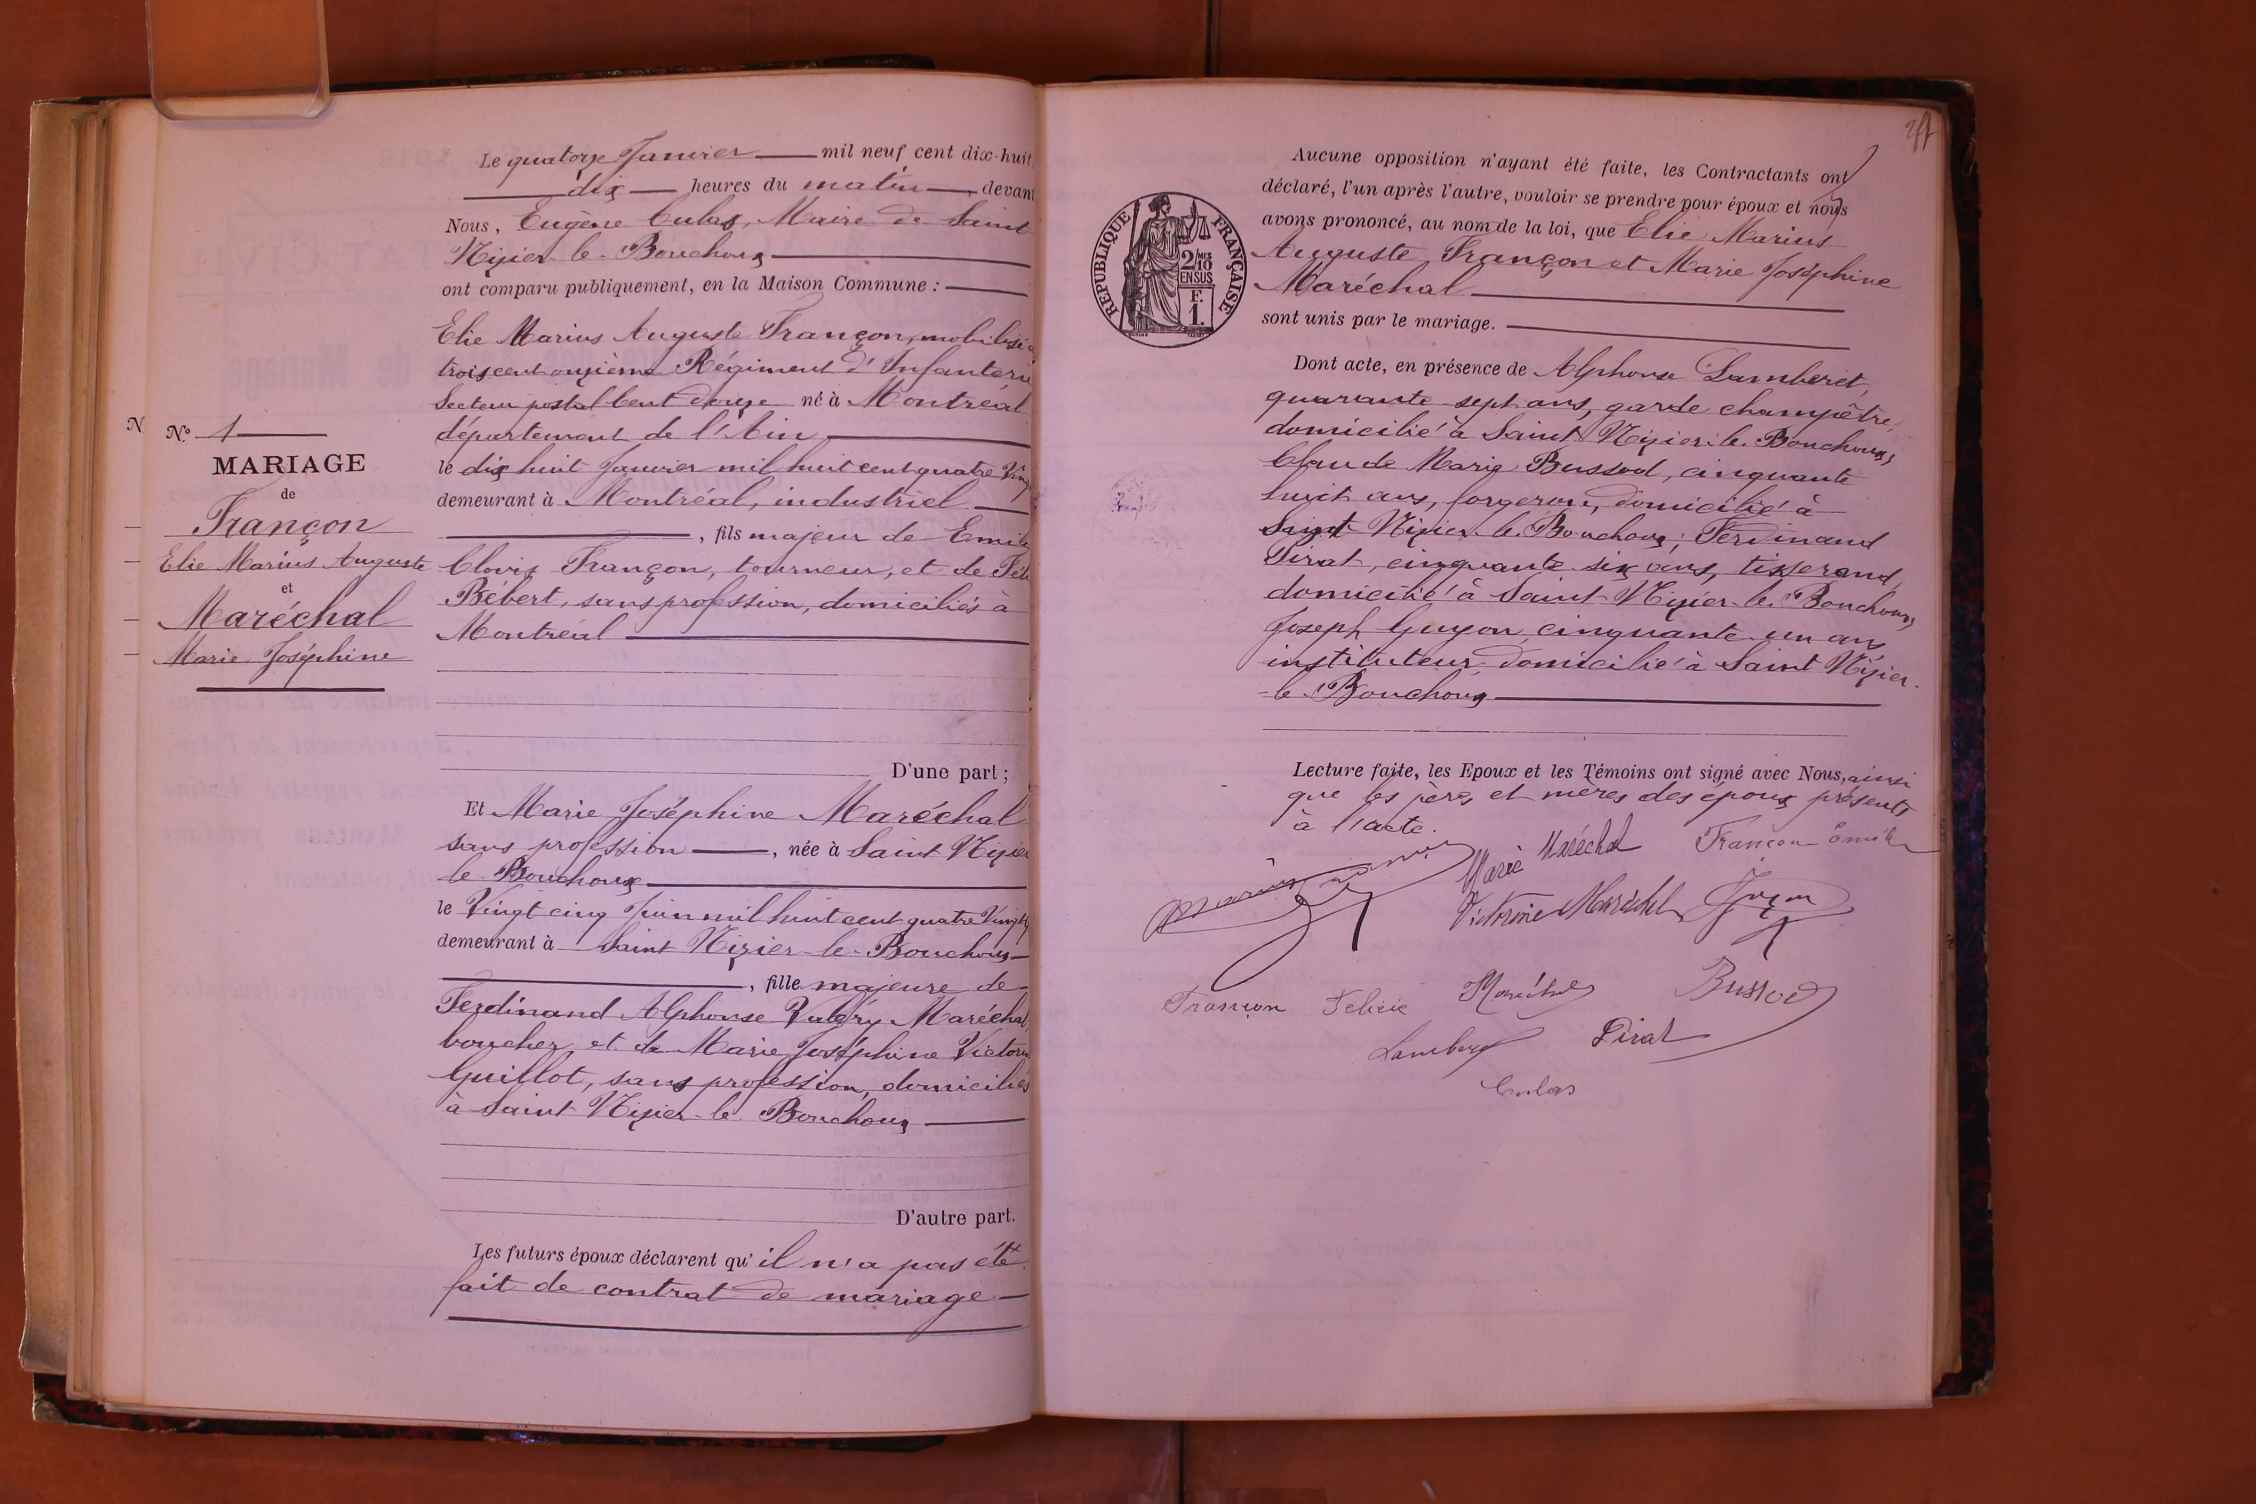 N
N.º 1
MARIAGE
de
Françon
Elie Marius Auguste
et
Maréchal
Marie Joséphine
Le quatorze Janvier mil neuf cent dix-huit
dix heures du matin, devant
Nous, Eugène Culas, Maire de Saint
Nizier-le-Bouchoux
ont comparu publiquement, en la Maison Commune :
Elie Marius Auguste Françon, mobilisé
trois cent onzième Régiment d'Infanterie
Secteur postal Cent douze né à Montréal
département de l'Ain
le dix huit Janvier mil huit cent quatre Vingt
demeurant à Montréal, industriel
, fils majeur de Emile
Clovis Françon, tourneur, et de
Bébert, sans profession, domiciliés à
Montréal
D'une part ;
Et Marie Joséphine Maréchal
sans profession, née à Saint Nizier
le Bouchoux
le Vingt cinq Juin mil huit cent quatre Vingt
demeurant à Saint Nizier-le-Bouchoux
, fille majeure de
Ferdinand Alphonse Valéry Maréchal,
boucher et de Marie Joséphine Victorine
Guillot, sans profession, domiciliés
à Saint Nizier-le-Bouchoux
D'autre part.
Les futurs époux déclarent qu'il n'a pas été
fait de contrat de mariage
RÉPUBLIQUE FRANÇAISE
2/10
EN SUS
F.
1.
Aucune opposition n'ayant été faite, les Contractants ont
déclaré, l'un après l'autre, vouloir se prendre pour époux et nous
avons prononcé, au nom de la loi, que Elie Marius
Auguste Françon et Marie Joséphine
Maréchal
sont unis par le mariage.
Dont acte, en présence de Alphonse Lamberet,
quarante-sept ans, garde champêtre,
domicilié à Saint Nizier-le-Bouchoux,
Claude Marie Bussod, cinquante
huit ans, forgeron, domicilié à
Saint Nizier-le-Bouchoux; Ferdinand
Pirat, cinquante six ans, tisserand,
domicilié à Saint-Nizier-le-Bouchoux,
Joseph Guyon, cinquante-un ans
instituteur, domicilié à Saint Nizier-
-le-Bouchoux
Lecture faite, les Epoux et les Témoins ont signé avec Nous, ainsi
que les pères et mères des époux présents
à l'acte.
Marie Maréchal
Françon Emile
Victorine Maréchal
Guyon
Françon Félicie
Maréchal
Bussod
Lamberet
Pirat
Culas